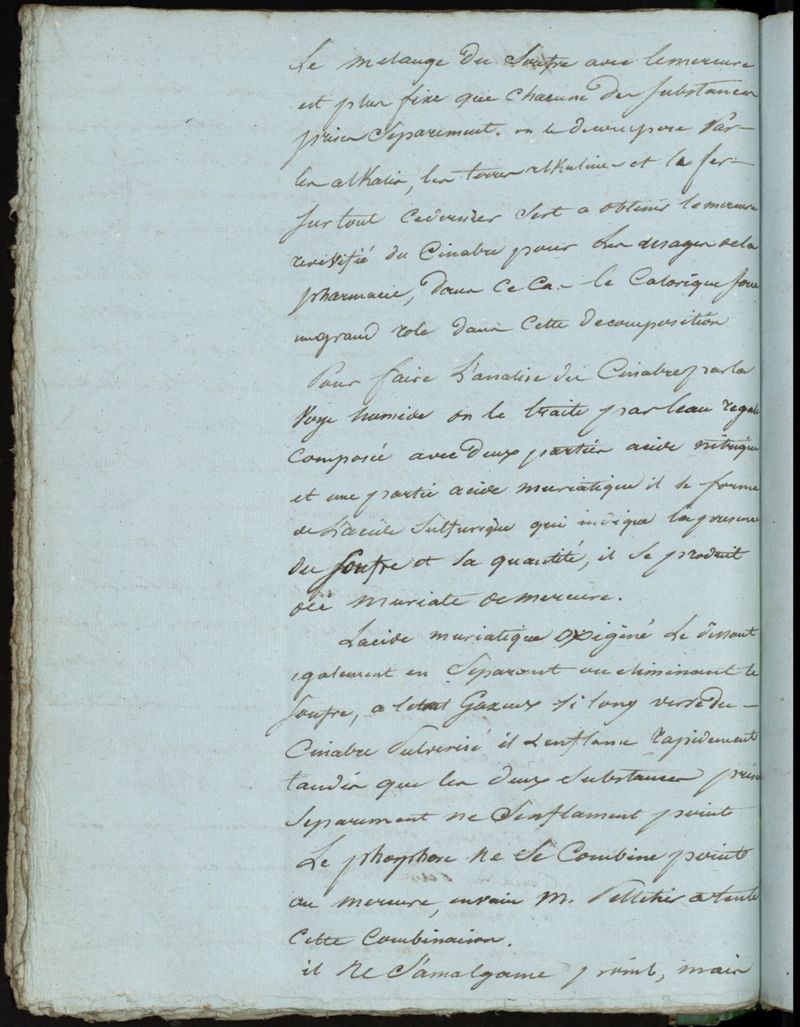 Le melange du Soufre avec lemercure
est plus fixe que Chacune des Substances
prises Separement. on le decompose par
les alkalis, les terres alkalines et le fer
surtout cedernier sert a obtenir lemercure
revivifié du Cinabre pour les usages dela
pharmacie, dans ce Cas le Calorique joue
ungrand role dans Cette decomposition
Pour faire L'analise du Cinabre par la
voye humide on le traite par leau regale
Composée avec deux parties acide nitrique
et une partie acide muriatique il se forme
de L'acide Sulfurique qui indique la presence
du Soufre et sa quantité, il se produit
du muriate demercure.
Lacide muriatique oxigéné Le dissout
egalement en Separant ou eliminant le
Soufre, a letat Gazeux si lony verse du
Cinabre Pulverisé il Senflame rapidement
tandis que les deux Substances prises
Separement ne Senflament point
Le phosphore ne se Combine point
au mercure, envain M. Pelletier a tenté
Cette Combinaison.
il ne S'amalgame point, mais